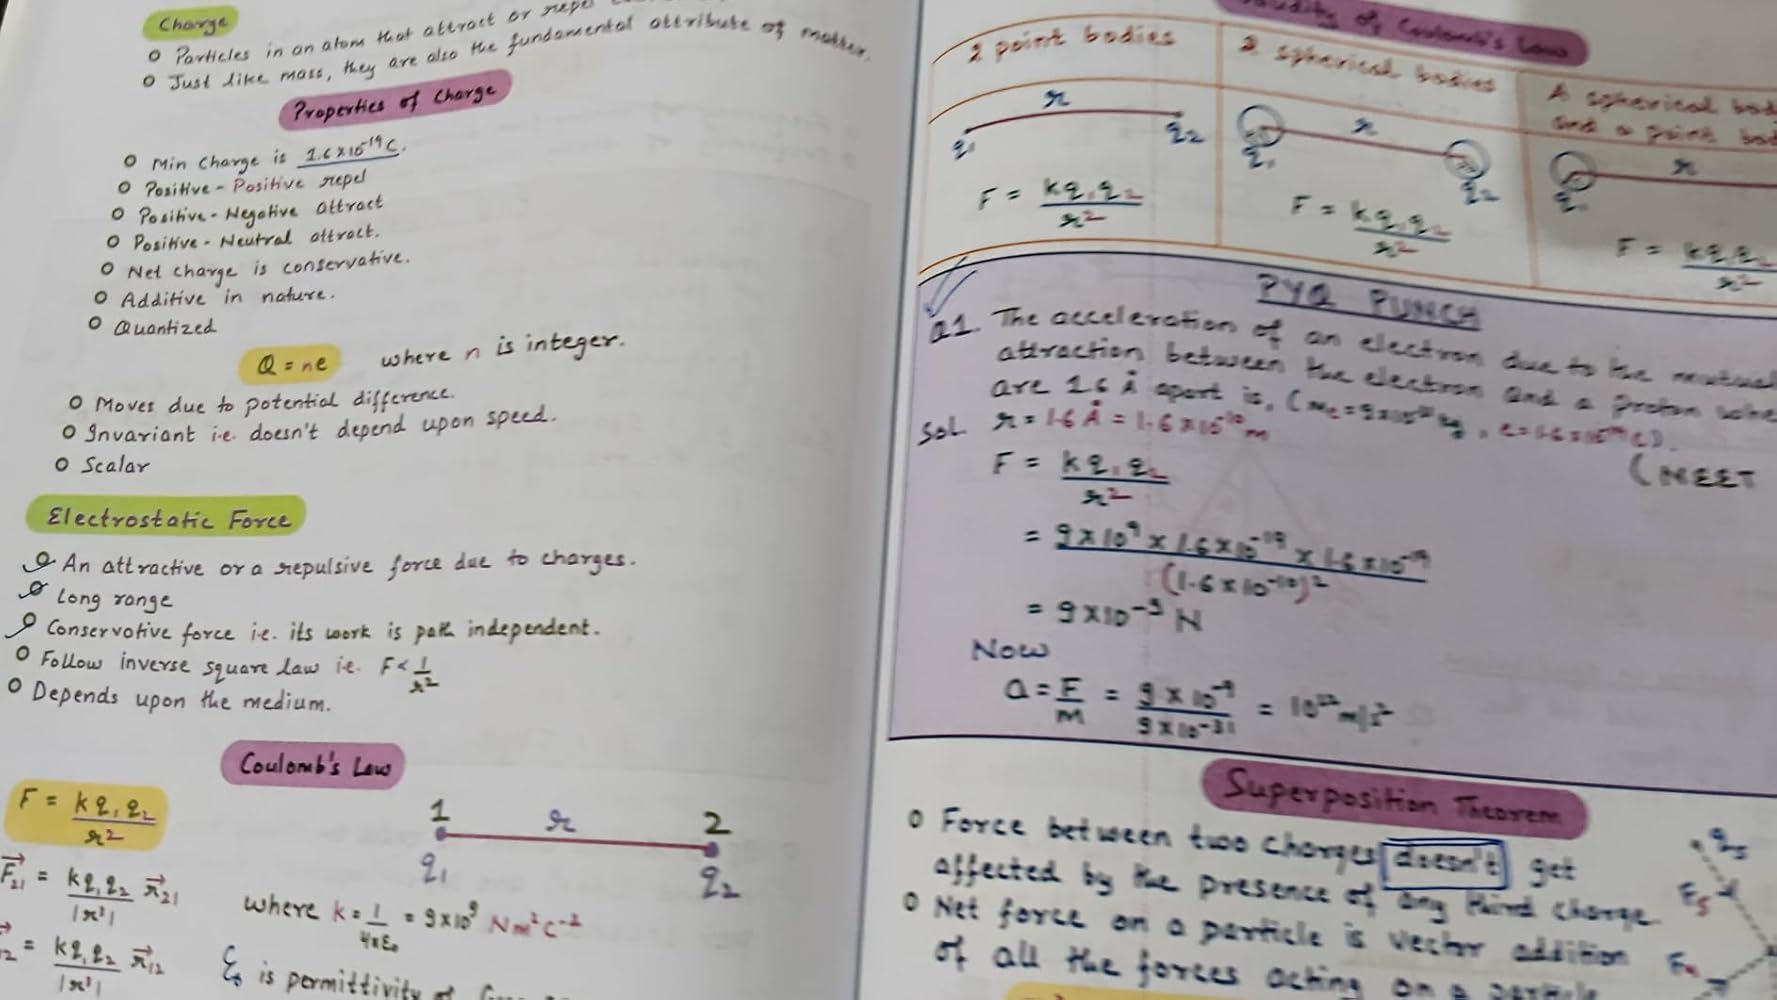 Charge
o Particles in an atom that attract or repel
o Just like mass, they are also the fundamental attribute of matter.
Properties of Charge
o Min Charge is 1.6×10⁻¹⁹C.
o Positive - Positive repel
o Positive - Negative attract
o Positive - Neutral attract.
o Net charge is conservative.
o Additive in nature.
o Quantized
Q = ne where n is integer.
o Moves due to potential difference.
o Invariant i.e. doesn't depend upon speed.
o Scalar
Electrostatic Force
o An attractive or a repulsive force due to charges.
o Long range
o Conservative force i.e. its work is path independent.
o Follow inverse square law i.e. F∝ 1/r²
o Depends upon the medium.
Coulomb's Law
F = kq₁q₂/r²
1 r 2
q₁ q₂
F⃗₂₁ = kq₁q₂/|r³| r⃗₂₁
where k = 1/4πε₀ = 9×10⁹ Nm²C⁻²
₁₂ = kq₁q₂/|r³| r⃗₁₂
ε₀ is permittivity of
of Coulomb's Law
2 point bodies
2 spherical bodies
A spherical bod
and a point bod
r
q₁ q₂
r
q₁ q₂
r
q₁
F = kq₁q₂/r²
F = kq₁q₂/r²
F = kq₁q₂/r²
PYQ PUNCH
Q1. The acceleration of an electron due to the mutual
attraction between the electron and a proton whe
are 1.6 Å apart is, (me=9×10⁻³¹ kg, e=1.6×10⁻¹⁹C).
(NEET
Sol. r = 1.6 Å = 1.6×10⁻¹⁰ m
F = kq₁q₂/r²
= 9×10⁹ × 1.6×10⁻¹⁹ × 1.6×10⁻¹⁹/(1.6×10⁻¹⁰)²
= 9×10⁻⁹ N
Now
a = F/m = 9×10⁻⁹/9×10⁻³¹ = 10²² m/s²
Superposition Theorem
o Force between two charges doesn't get
affected by the presence of any third charge.
o Net force on a particle is vector addition
of all the forces acting on a particle
q₅
F₅